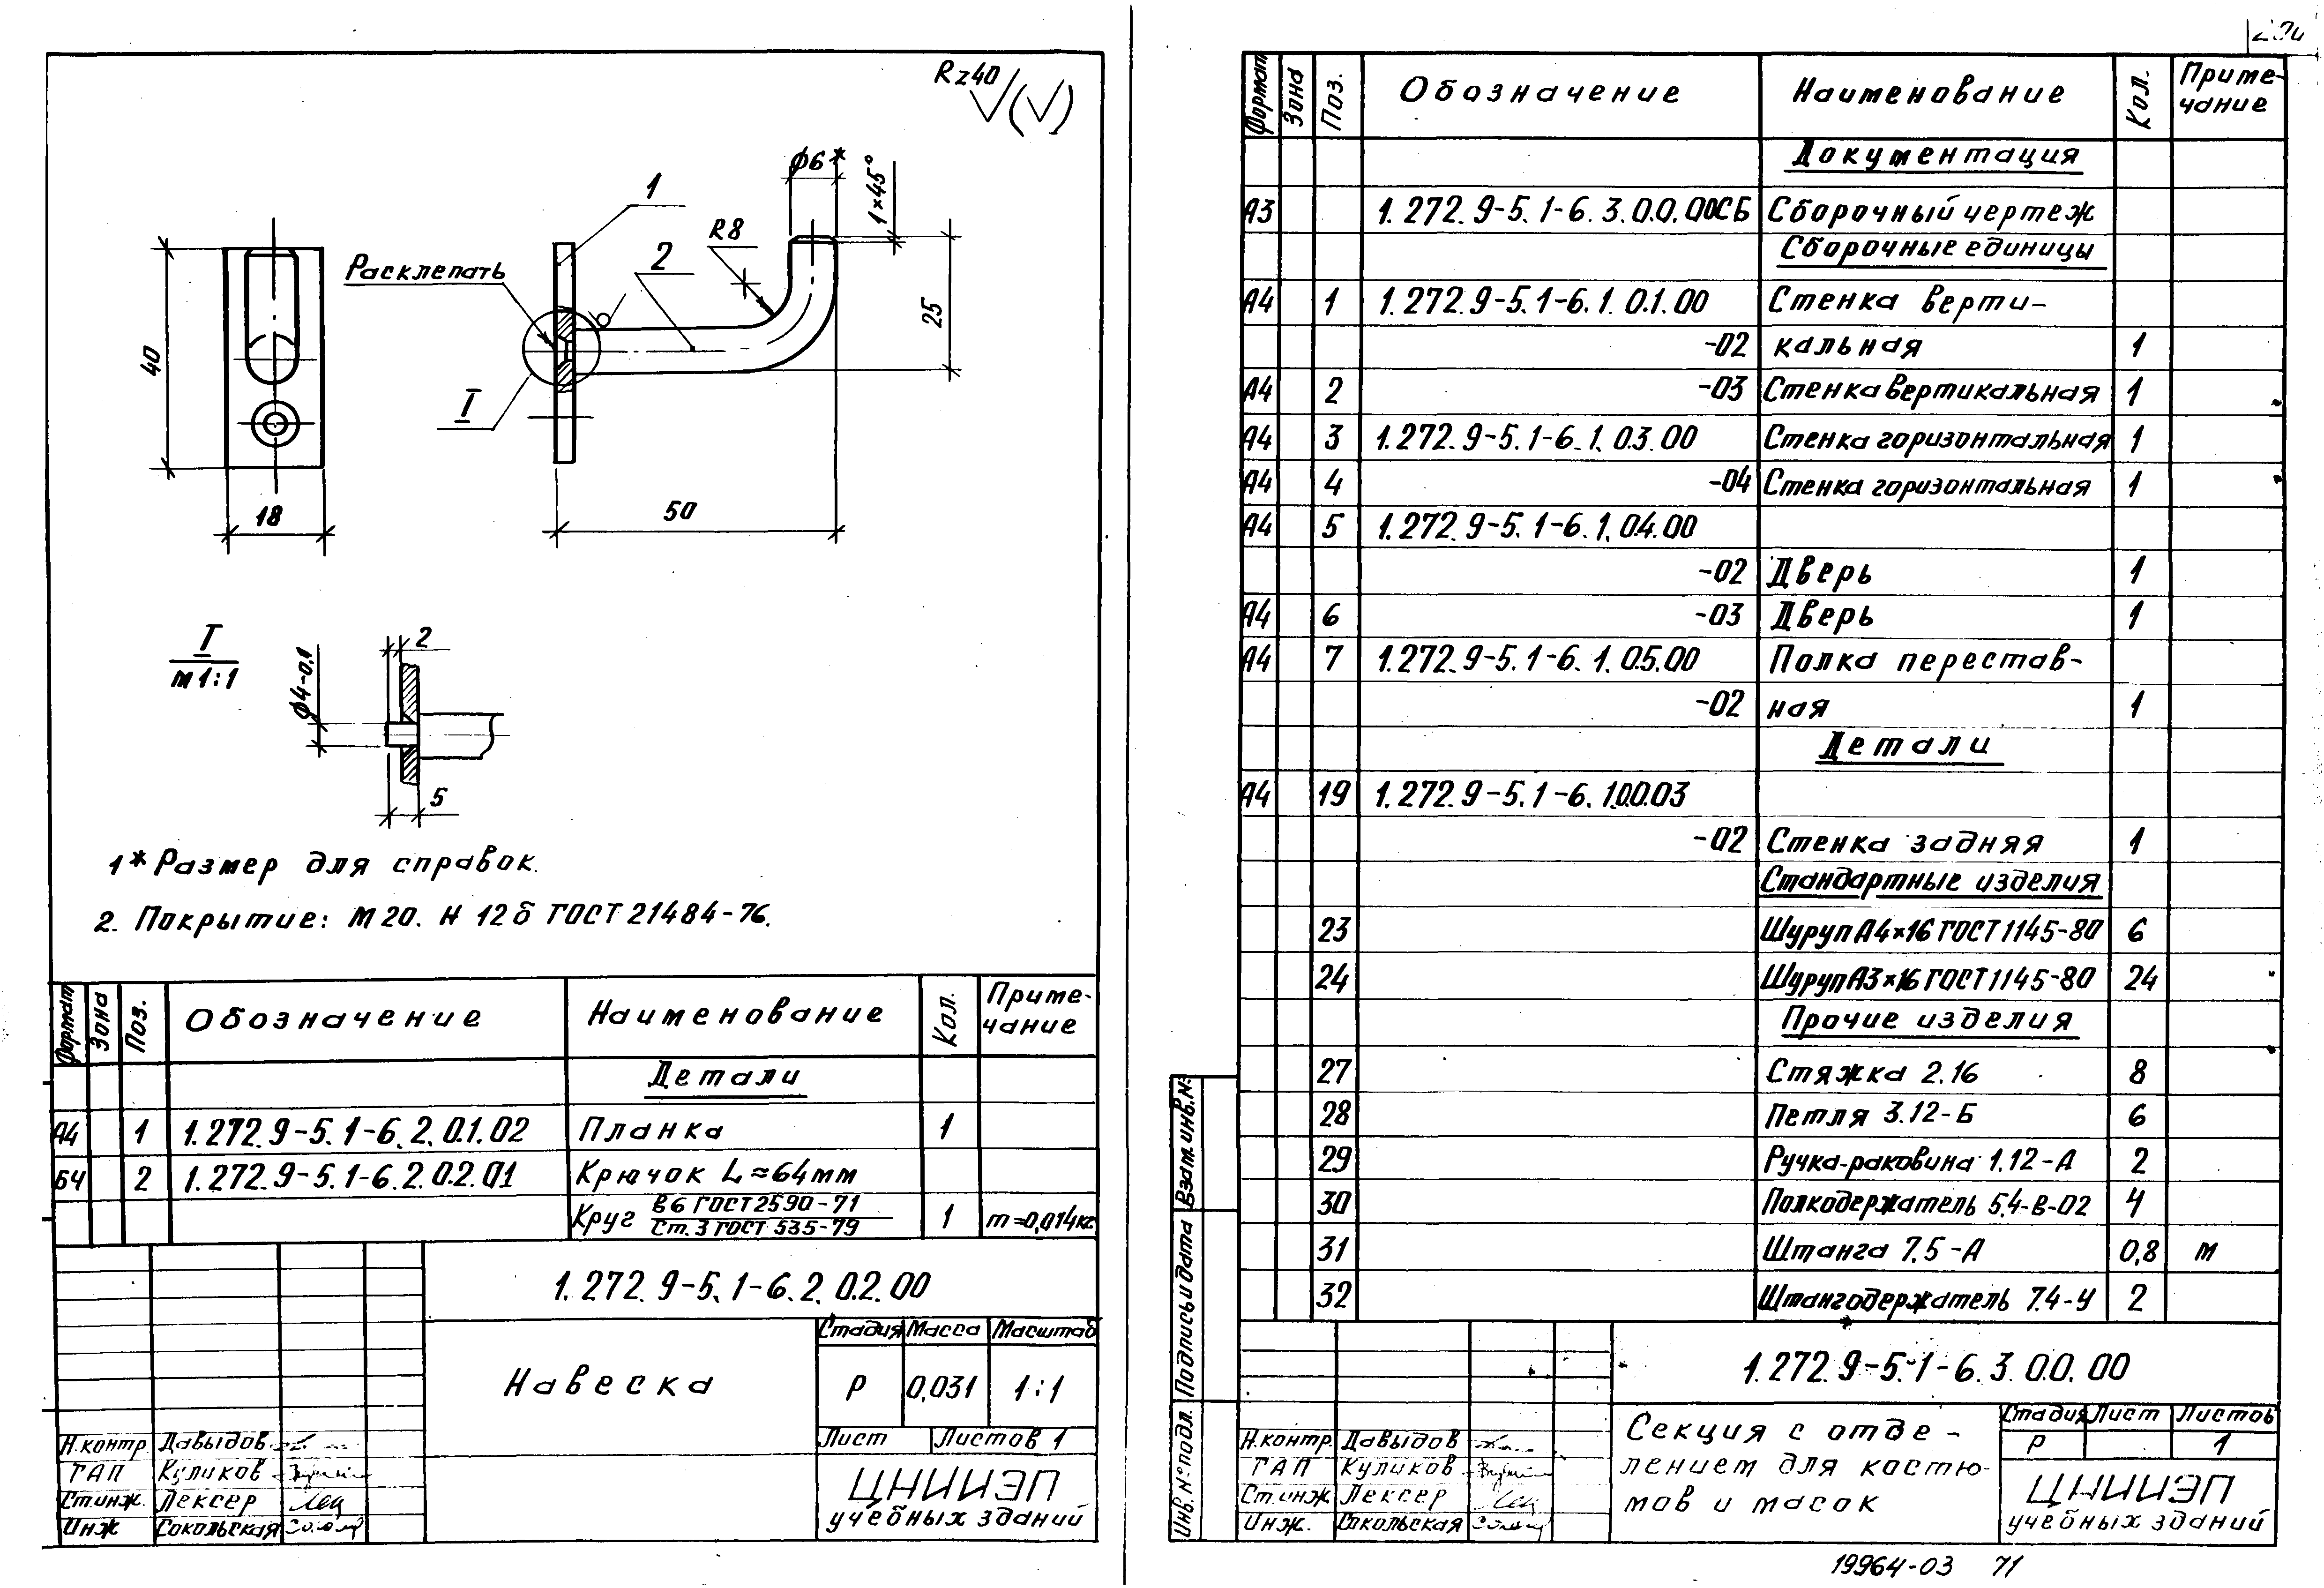 Rz40 √(√)
⌀6*
1×45°
1
R8
2
Расклепать
25
40
I
18
50
I
М 1:1
2
⌀4-0,1
5
1* Размер для справок.
2. Покрытие: М20. Н 12б ГОСТ 21484-76.
Формат Зона Поз. Обозначение Наименование Кол. Приме-
чание
Детали
А4 1 1.272.9-5.1-6.2.0.1.02 Планка 1
БЧ 2 1.272.9-5.1-6.2.0.2.01 Крючок L≈64мм
Круг В6 ГОСТ 2590-71 1 m=0,014кг
Ст.3 ГОСТ 535-79
1.272.9-5.1-6.2.0.2.00
Навеска
Стадия Масса Масштаб
Р 0,031 1:1
Лист Листов 1
Н.контр. Давыдов
ГАП Куликов
Ст.инж. Лексер
Инж Сокольская
ЦНИИЭП
учебных зданий
Формат Зона Поз. Обозначение Наименование Кол. Приме-
чание
Документация
А3 1.272.9-5.1-6.3.0.0.00СБ Сборочный чертеж
Сборочные единицы
А4 1 1.272.9-5.1-6.1.0.1.00 Стенка верти-
-02 кальная 1
А4 2 -03 Стенка вертикальная 1
А4 3 1.272.9-5.1-6.1.0.3.00 Стенка горизонтальная 1
А4 4 -04 Стенка горизонтальная 1
А4 5 1.272.9-5.1-6.1.0.4.00
-02 Дверь 1
А4 6 -03 Дверь 1
А4 7 1.272.9-5.1-6.1.0.5.00 Полка перестав-
-02 ная 1
Детали
А4 19 1.272.9-5.1-6.1.0.0.03
-02 Стенка задняя 1
Стандартные изделия
23 Шуруп А4×16 ГОСТ 1145-80 6
24 Шуруп А3×16 ГОСТ 1145-80 24
Прочие изделия
27 Стяжка 2.16 8
28 Петля 3.12-Б 6
29 Ручка-раковина 1.12-А 2
30 Полкодержатель 5.4-В-02 4
31 Штанга 7.5-А 0,8 м
32 Штангодержатель 7.4-У 2
Взам.инв.№
Подпись и дата
Инв.№ подл.
1.272.9-5.1-6.3.0.0.00
Секция с отде-
лением для костю-
мов и масок
Стадия Лист Листов
Р 1
Н.контр. Давыдов
ГАП Куликов
Ст.инж Лексер
Инж. Сокольская
ЦНИИЭП
учебных зданий
19964-03 71